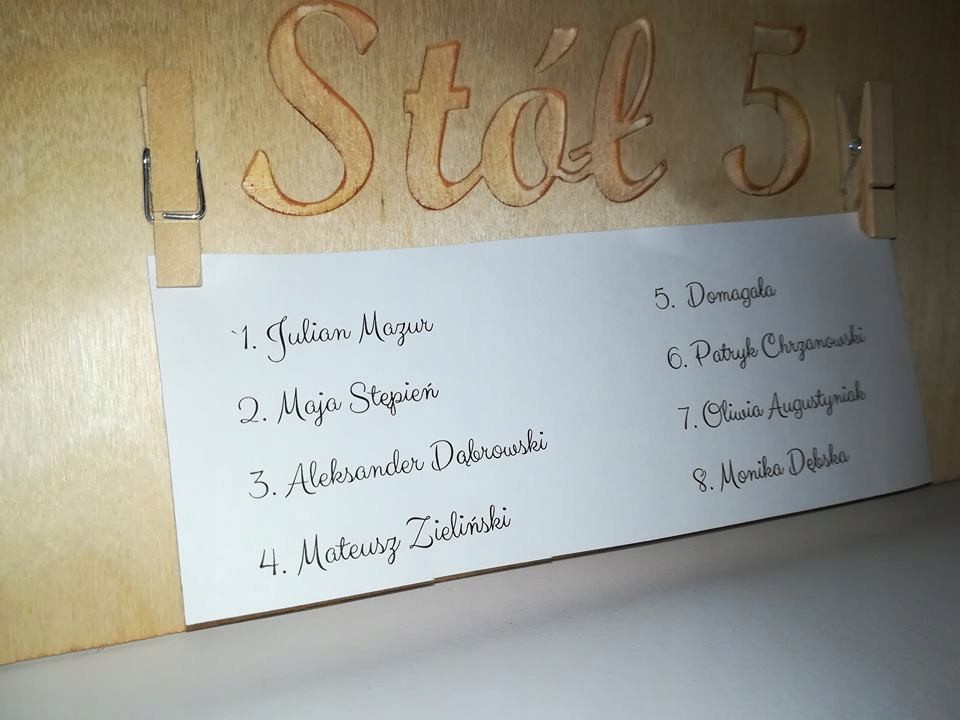 Stół 5
1. Julian Mazur
2. Maja Stępień
3. Aleksander Dąbrowski
4. Mateusz Zieliński
5. Domagała
6. Patryk Chrzanowski
7. Oliwia Augustyniak
8. Monika Dębska